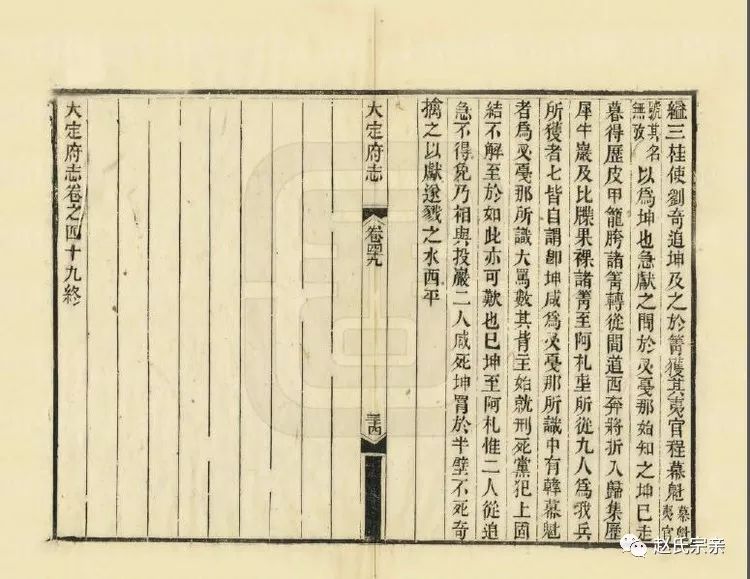 繼三桂使劉奇追坤及之於箐獲其夷官程慕魁慕魁夷官
號其名無攷以爲坤也急獻之問於叉戞那始知之坤已走
暮得歷皮甲籠胯諸箐轉從間道西奔將折入歸集歷
犀牛巖及比臘果裸諸箐至阿札坐所從九人爲我兵
所獲者七皆自謂卽坤咸爲叉戞那所識中有韓慕魁
者爲叉戞那所識大罵數其背主始就刑死黨犯上固
結不解至於如此亦可歎也已坤至阿札惟二人從追
急不得免乃相與投巖二人咸死坤罥於半壁不死奇
擒之以獻遂戮之水西平
大定府志
卷四十九
三十四
大定府志卷之四十九終
赵氏宗亲